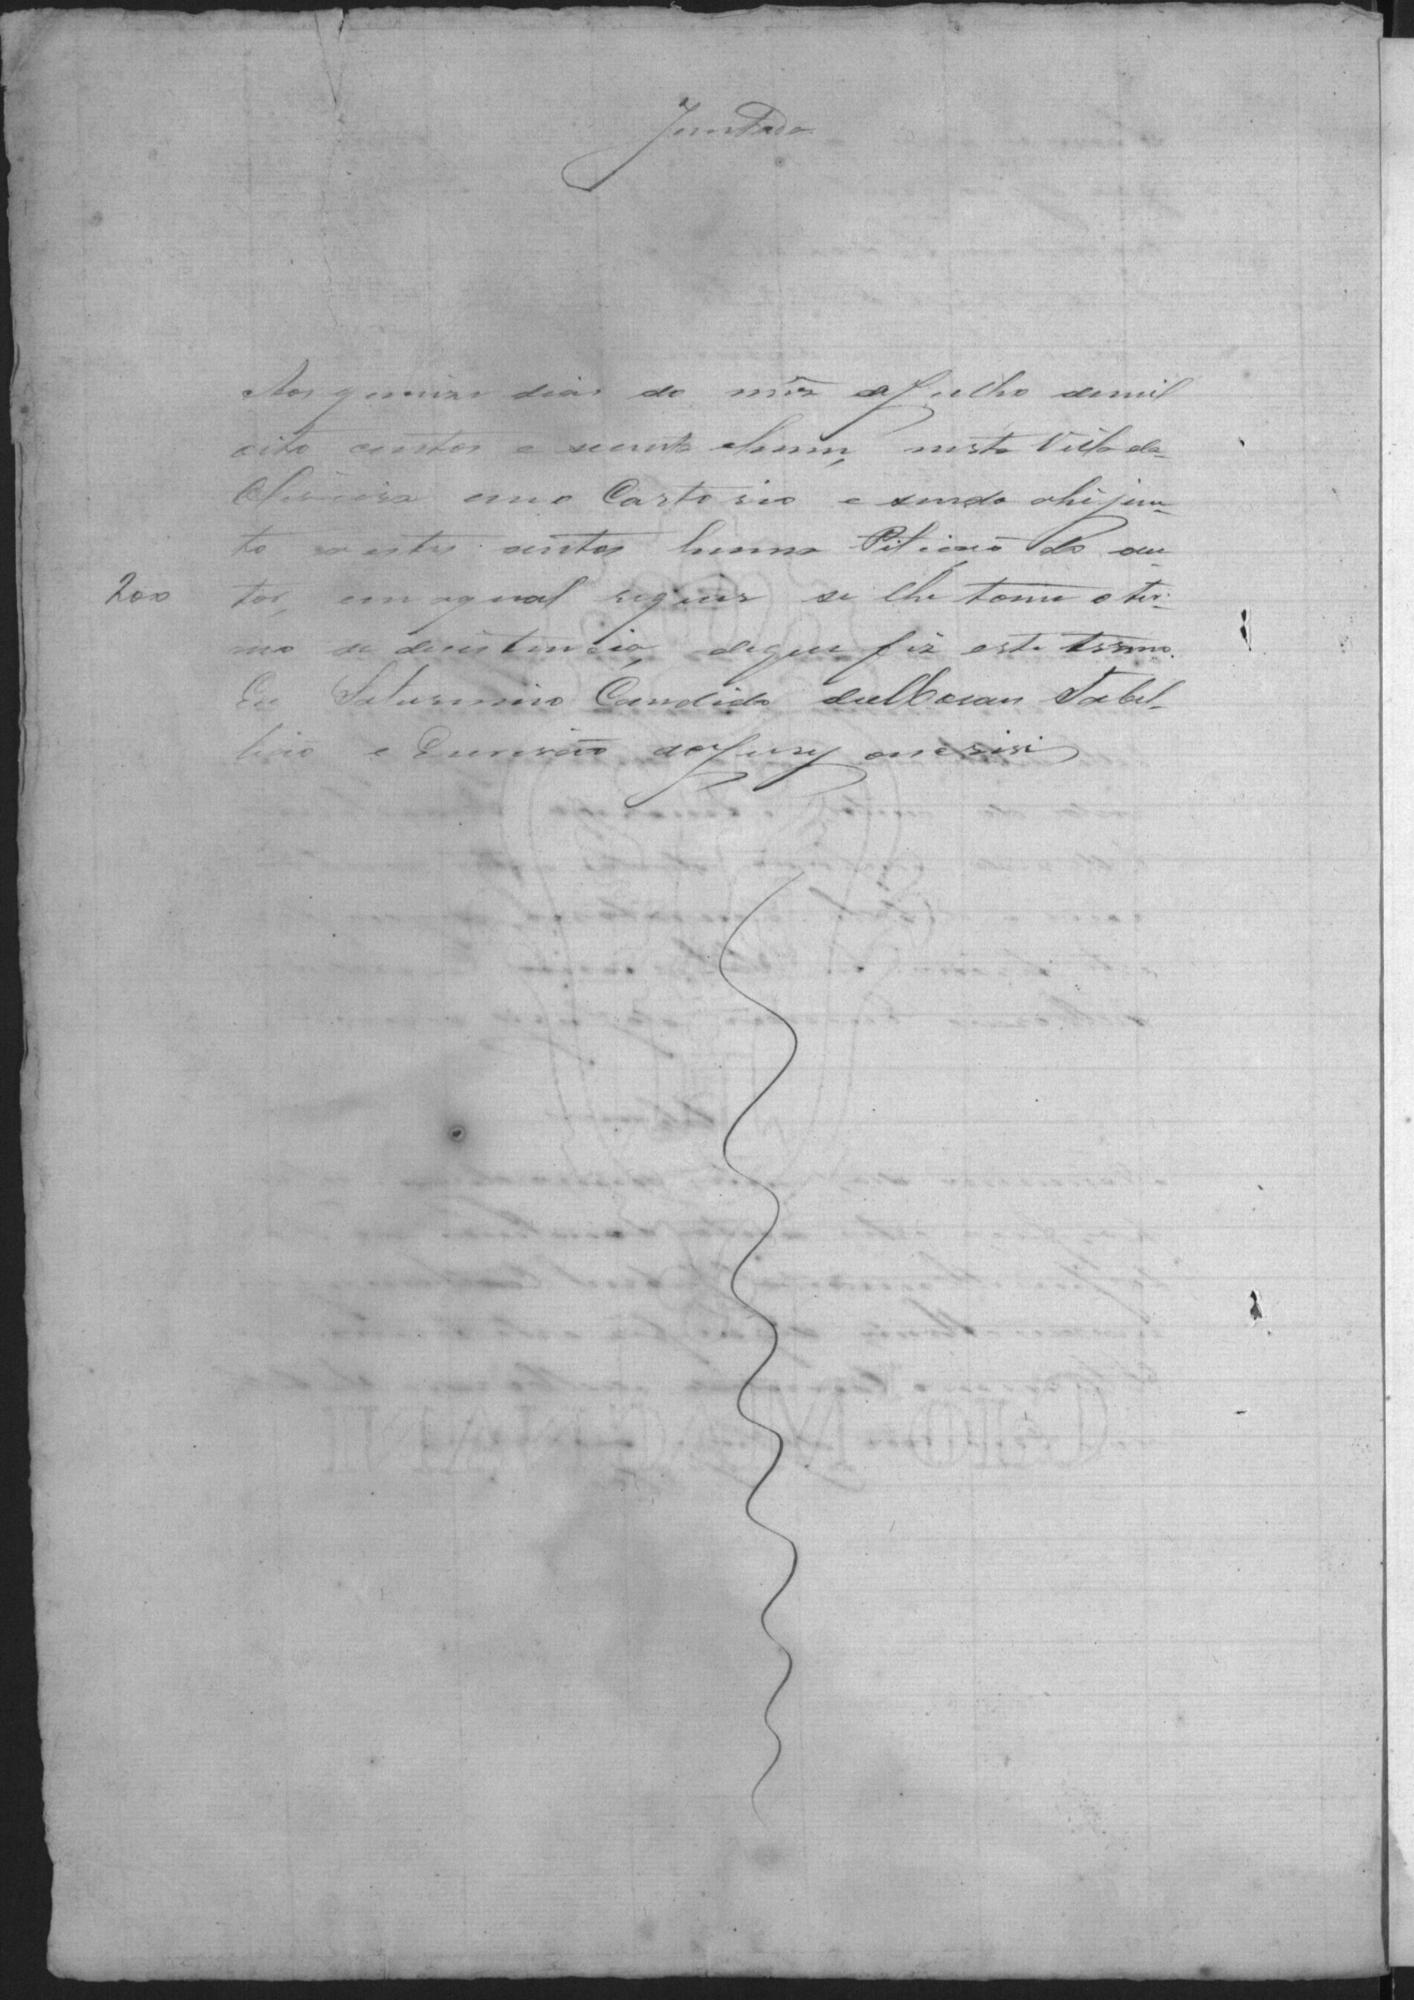 Juntada
Aos quinze dias do mês de Julho de mil
oito centos e secenta e hum, nesta Villa de
em o Cartorio e sendo ahi jun-
to a estes autos huma Petição do au-
200 tor, em a qual requer se lhe tome o ter-
mo de desistencia, de que fiz este termo.
Eu Saturnino Candido de Moraes Tabel-
lião e Escrivão do Jury o escrevi